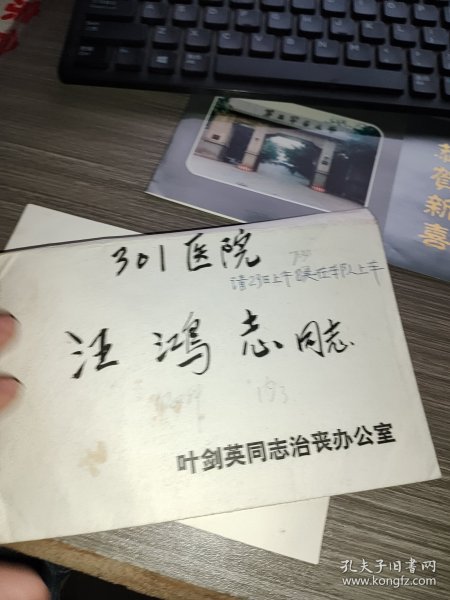 恭贺新喜
301医院
请29日上午
汪鸿志同志
193
叶剑英同志治丧办公室
孔夫子旧书网
www.kongfz.com